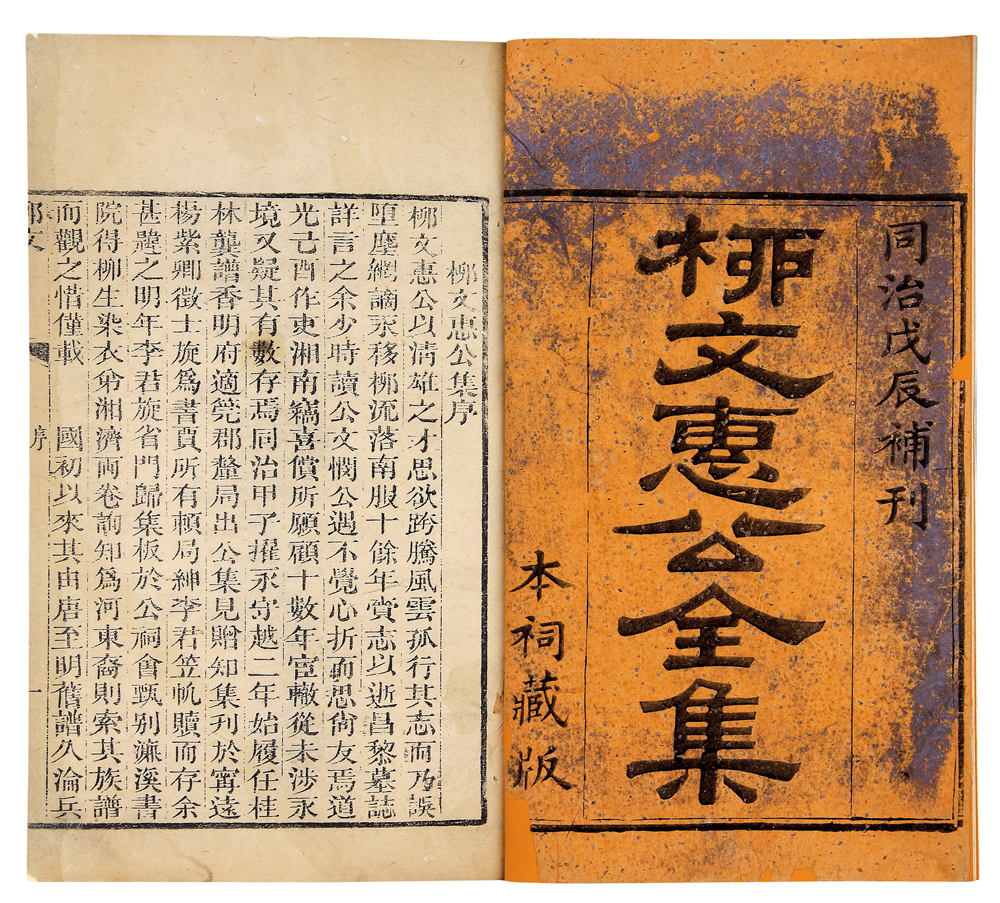 同治戊辰補刊
柳文惠公全集
本祠藏版
柳文惠公集序
柳文惠公以清雄之才思欲跨騰風雲孤行其志而乃誤
墮塵網謫永移柳流落南服十餘年賫志以逝昌黎墓誌
詳言之余少時讀公文憫公遇不覺心折而思尙友焉道
光己酉作吏湘南竊喜償所願顧十數年宦轍從未涉永
境又疑其有數存焉同治甲子擢永守越二年始履任桂
林龔譜香明府適筦郡釐局出公集見贈知集刊於甯遠
楊紫卿徵士旋爲書賈所有賴局紳李君笠帆贖而存余
甚韙之明年李君旋省門歸集板於公祠會甄别濂溪書
院得柳生染衣弟湘濟兩卷詢知爲河東裔則索其族譜
而觀之惜僅載 國初以來其由唐至明舊譜久淪兵
柳文 序 一